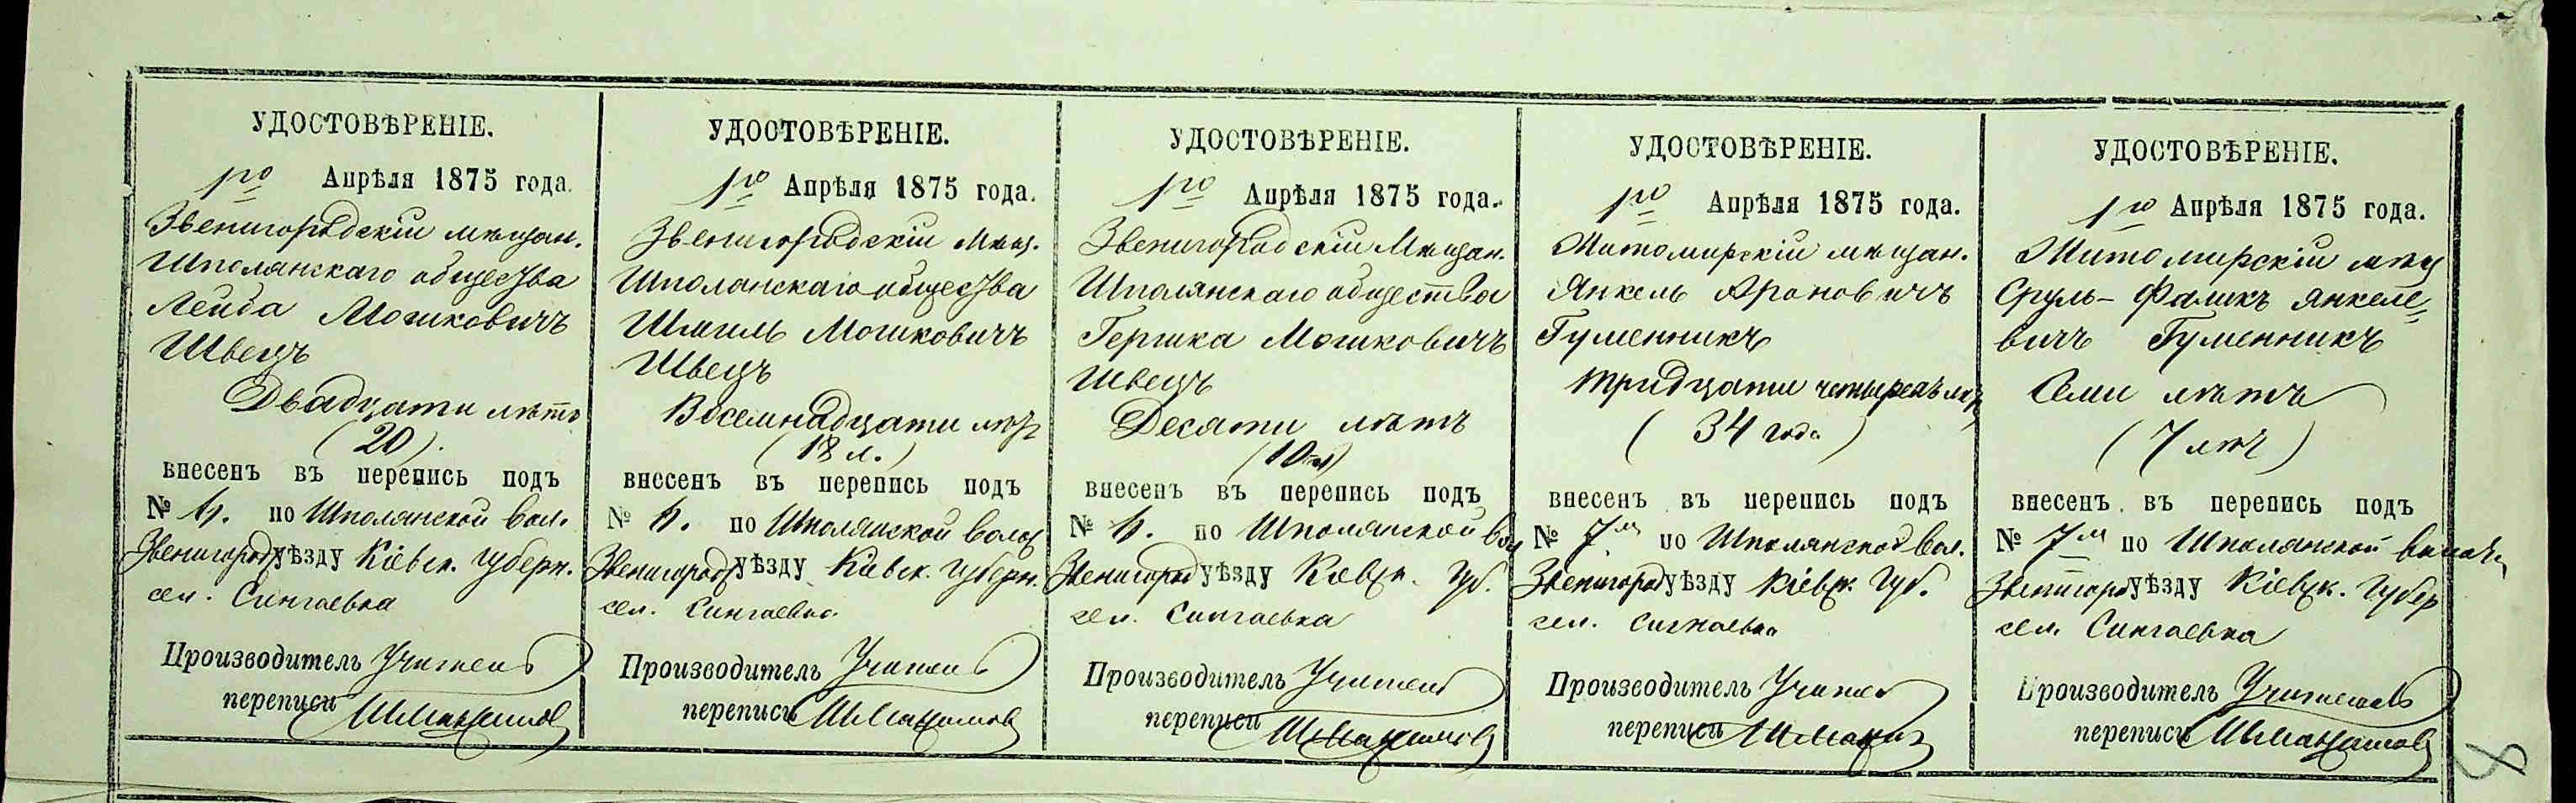 УДОСТОВѢРЕНІЕ.
1го Апрѣля 1875 года.
Звенигородскiй мѣщан.
Шполянскаго общества
Лейба Мошковичъ
Швецъ
Двадцати лѣтъ
(20).
внесенъ въ перепись подъ
№ по Шполянской вол.
Звенигород уѣзду Кіевск. губерн.
сел. Сингаевка
Производитель Учитель
переписи
УДОСТОВѢРЕНІЕ.
1го Апрѣля 1875 года.
Звенигородскій Мѣщ.
Шполянскаго общества
Шмиль Мошковичъ
Швецъ
Восемнадцати лѣт
(18 л.)
внесенъ въ перепись подъ
№ по Шполянской волос
Звенигород уѣзду Кіевск. губерн.
сел. Сингаевка
Производитель Учитель
переписи
УДОСТОВѢРЕНІЕ.
1го Апрѣля 1875 года.
Звенигородскій Мѣщан.
Шполянскаго общества
Гершка Мошковичъ
Швецъ
Десяти лѣтъ
(10 л)
внесенъ въ перепись подъ
№ по Шполянской вол
Звенигород уѣзду Кіевск. Губ.
сел. Сингаевка
Производитель Учитель
переписи
УДОСТОВѢРЕНІЕ.
1го Апрѣля 1875 года.
Житомирскій мѣщан.
Янкель Ароновичъ
Гуменникъ
тридцати четырехъ лѣт
(34 года)
внесенъ въ перепись подъ
№ 7м по Шполянской Вол.
Звенигород уѣзду Кіевск. Губ.
сел. Сигнаевка
Производитель Учител
переписи
УДОСТОВѢРЕНІЕ.
1го Апрѣля 1875 года.
Житомирскій мѣщ
Сруль-Фаликъ Янкеле=
вичъ Гуменникъ
Семи лѣтъ
(7 лѣт)
внесенъ въ перепись подъ
№ 7м по Шполянской волости
Звенигород уѣзду Кіевск. Губер
сел. Сингаевка
Производитель Учитель
переписи
8